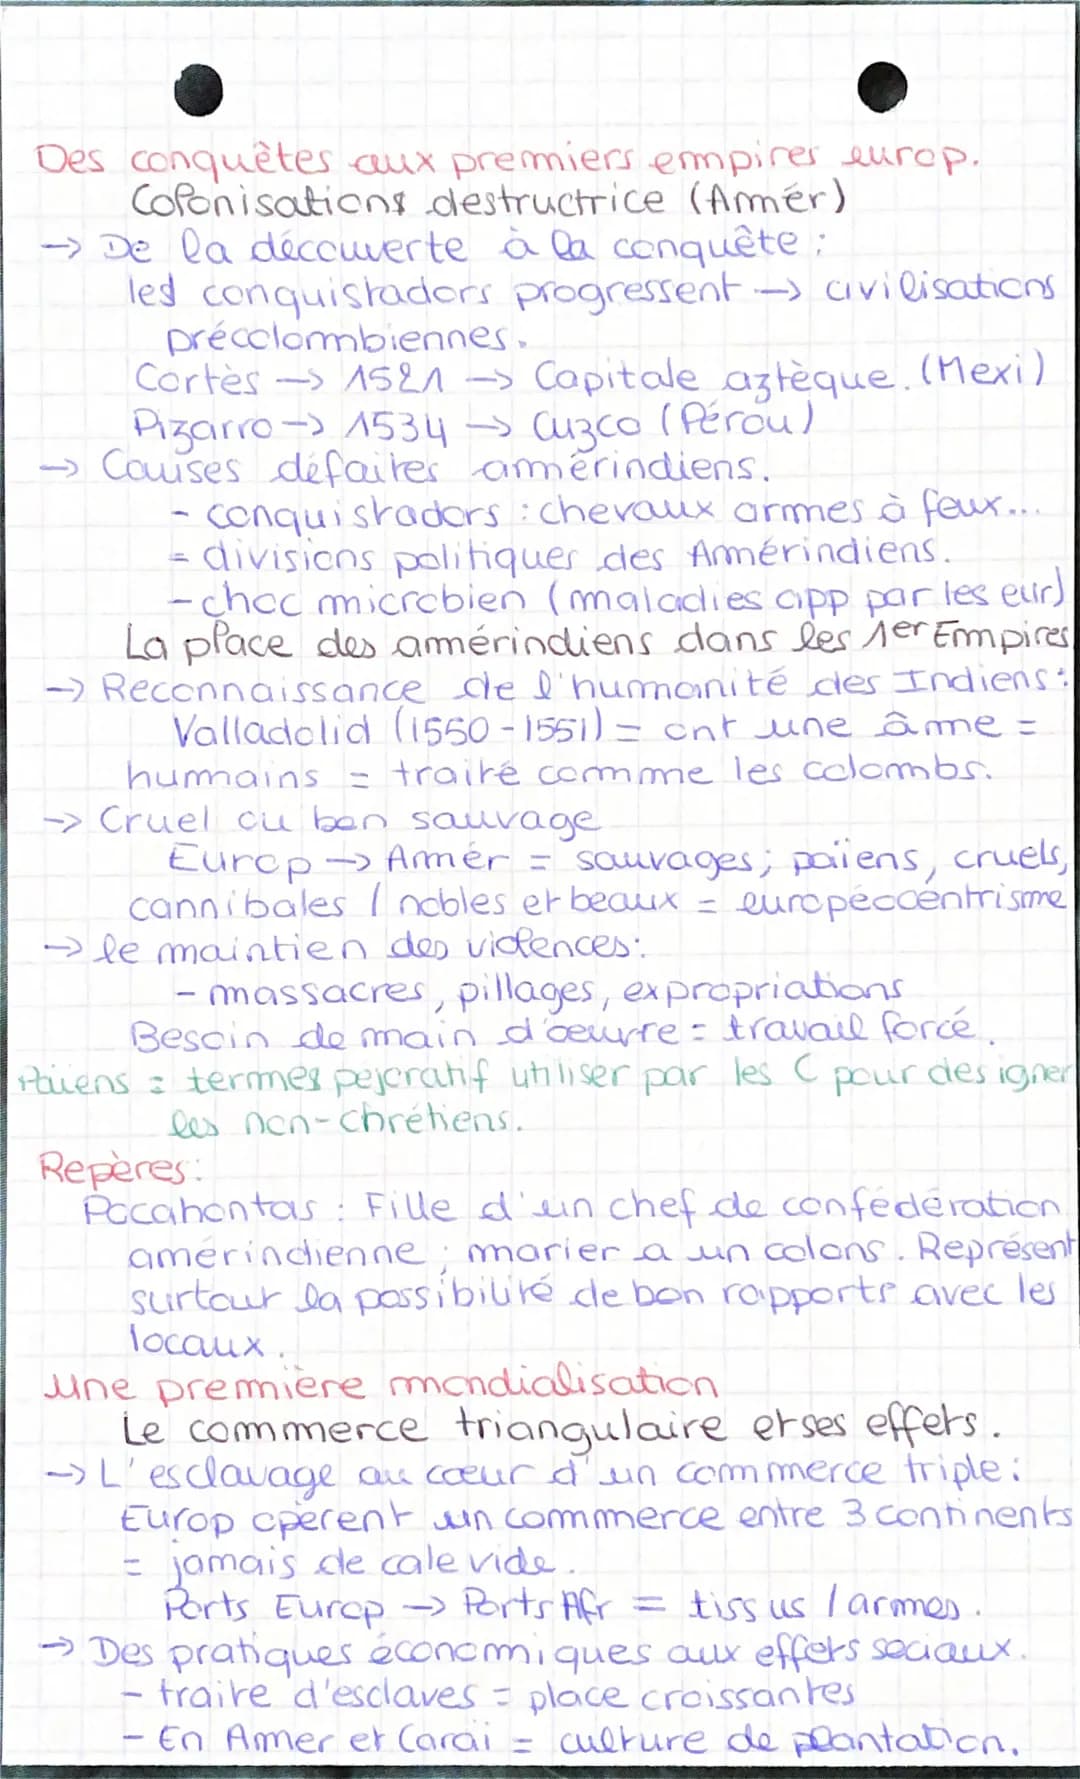 Des conquêtes aux premiers empires europ.
Colonisations destructrice (Amér)
→ De la découverte à la conquête :
les conquistadors progressent → civilisations
précolombiennes.
Cortès → 1521 → Capitale aztèque. (Mexi)
Pizarro → 1534 → Cuzco (Pérou)
→ Causes défaites amérindiens.
- conquistadors : chevaux armes à feux...
= divisions politiques des Amérindiens.
- choc microbien (maladies app par les eur)
La place des amérindiens dans les 1er Empires
→ Reconnaissance de l'humanité des Indiens :
Valladolid (1550-1551) = ont une âme =
humains = traité comme les colombs.
→ Cruel ou bon sauvage
Europ → Amér = sauvages; païens, cruels,
cannibales / nobles et beaux = européocentrisme
→ le maintien des violences :
- massacres, pillages, expropriations
Besoin de main d'œuvre = travail forcé.
Païens = termes pejoratif utiliser par les C pour designer
les non-chrétiens.
Repères :
Pocahontas : Fille d'un chef de confédération
amérindienne ; marier a un colons. Représent
surtout la possibilité de bon rapports avec les
locaux.
une première mondialisation
Le commerce triangulaire et ses effets.
→ L'esclavage au cœur d'un commerce triple :
Europ opèrent un commerce entre 3 continents
= jamais de cale vide.
Ports Europ → Ports Afr = tissus / armes.
→ Des pratiques économiques aux effets sociaux.
- traite d'esclaves = place croissantes
- En Amer et Carai = culture de plantation.